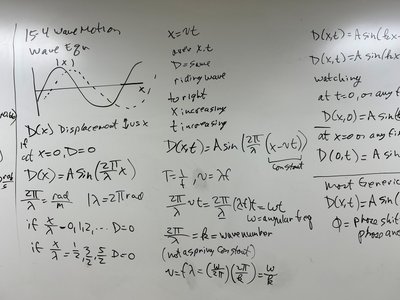 15.4 Wave Motion
Wave Eqn
(x)
x
D(x) Displacement of us x
If
at x=0, D=0
D(x) = A sin(2π/λ x)
2π/λ = rad/m |λ=2π rad
if x/λ = 0,1,2,... D=0
if x/λ = 1/2, 3/2, 5/2 D=0
x=vt
over x,t
D=same
riding wave
to right
x increasing
t increasing
D(x,t) = A sin(2π/λ (x-vt))
constant
T=1/f, v=λf
2π/λ vt = 2π/λ (λf)t = ωt
ω=angular freq
2π/λ = k = wave number
(not a spring constant)
v = fλ = (ω/2π)(2π/k) = ω/k
D(x,t) = A sin(kx-
D(x,t) = A sin(kx
watching
at t=0, or any t
D(x,0) = A sin(
at x=0 or any
D(0,t) = A sin
most Generic
D(x,t) = A sin
Φ = phase shift
phase an